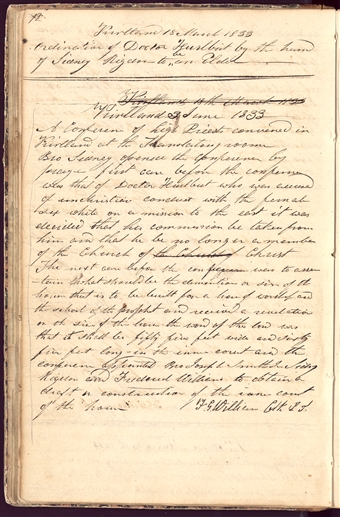 12
Kirtland 18 March 1833
Ordination of Doctor Hurlbut by the hand
of Sidney Rigdon to be an Elder
Kirtland 3 June 1833
A Conference of high Priests convened in
Kirtland at the Translating room
Bro Sidney opened the Conference by
prayer first case before the conference
was that of Doctor Hurlbut who was accused
of unchristian conduct with the female
sex while on a mission to the east it was
decided that his commission be taken from
him and that he be no longer a member
of the Church of Christ
The next case before the conference was to asser
tain what should be the dimention or size of the
house that is to be built for a house of worship and
the school of the prophets and received a revelation
on the size of the house the word of the Lord was
that it shall be fifty five feet wide and sixty
five feet long in the inner court and the
conference appointed Bro Joseph Smith Jr Sidney
Rigdon and Frederick Williams to obtain a
draft or construction of the inner court
of the house
F G Williams Clk P T